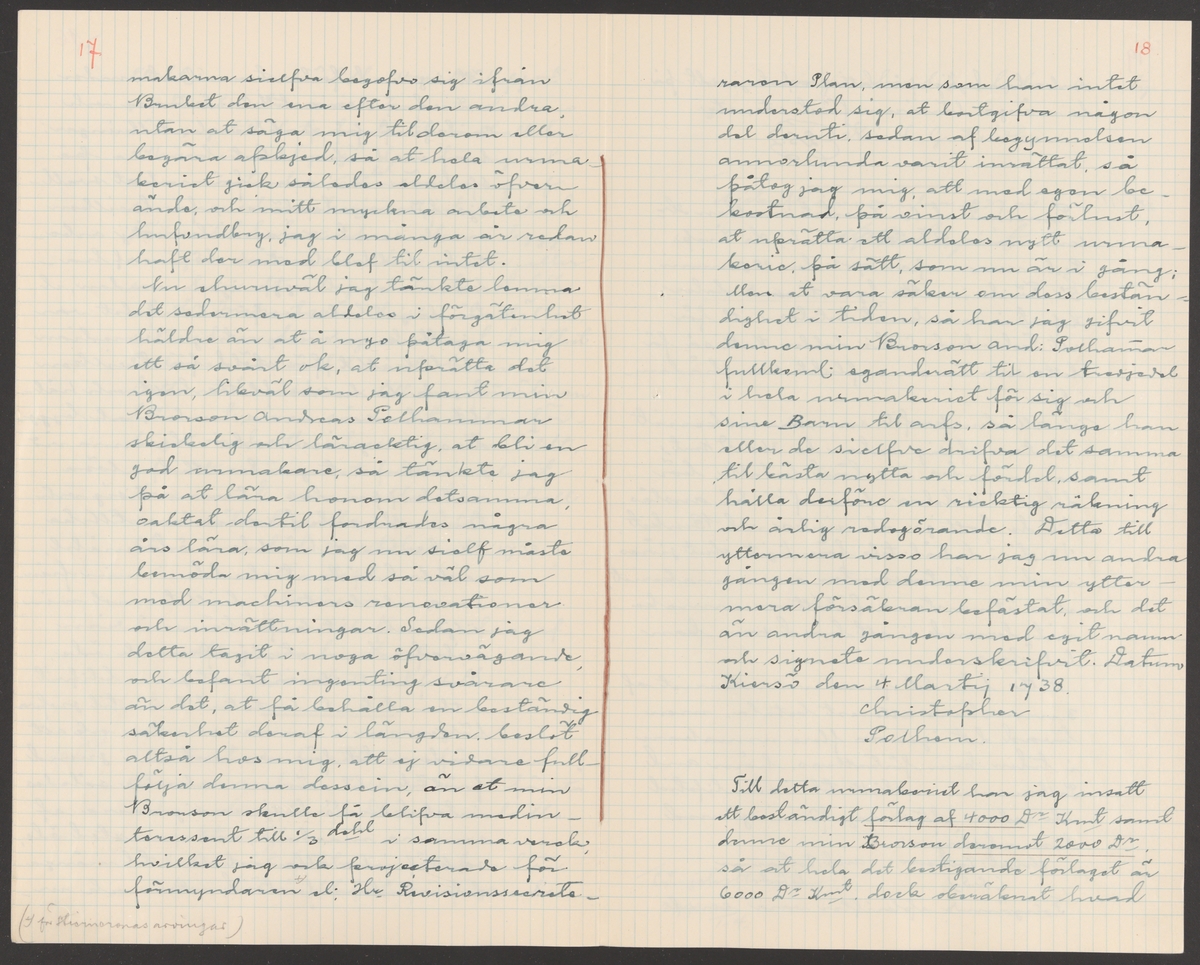 17
makarna sielfva begofvo sig ifrån
Bruket den ena efter den andra,
utan at säga mig til derom eller
begära afskjed, så at hela urma-
keriet gick således aldeles öfver
ände, och mitt myckna arbete och
hufvudbry, jag i många år redan
haft der med blef til intet.
Nu ehuruväl jag tänkte lemna
det sedermera aldeles i förgätenhet
häldre än at å nyo påtaga mig
ett så svårt ok, at uprätta det
igen, likväl som jag fant min
Brorson Andreas Polhammar
skickelig och läraktig, at bli en
god urmakare, så tänkte jag
på at lära honom detsamma,
oaktat dertil fordrades några
års lära, som jag nu sielf måste
bemöda mig med så väl som
med machiners renovationer
och inrättningar. Sedan jag
detta tagit i noga öfvervägande,
och befant ingenting svårare
än det, at få behålla en beständig
säkerhet deraf i längden, beslöt
altså hos mig, att ej vidare full-
följa denna dessein, än at min
Brorson skulle få blifva medin-
teressent till 1/3 dehl i samma verck,
hvilket jag ock projecterade för
förmyndaren x) el: Hr Revisionssecrete-
18
raren Plan, men som han intet
understod sig, at bortgifva någon
del deruti, sedan af begynnelsen
annorlunda varit inrättat, så
påtog jag mig, att med egen be-
kostnad, på vinst och förlust,
at uprätta ett aldeles nytt urma-
kerie, på sätt, som nu är i gång;
Men at vara säker om dess bestän-
dighet i tiden, så har jag gifvit
denne min Brorson And: Polhammar
fullkoml: eganderätt til en tredjedel
i hela urmakeriet för sig och
sine Barn til arfs, så länge han
eller de sielfve drifva det samma
til bästa nytta och fördel, samt
hålla derföre en ricktig räkning
och årlig redogörande. Detta till
yttermera visso har jag nu andra
gången med denne min ytter-
mera försäkran befästat, och det
än andra gången med egit namn
och signete underskrifvit. Datum
Kiersö den 4 Martij 1738.
Christopher
Polhem.
Till detta urmakeriet har jag insatt
ett beständigt förlag af 4000 Dr Kmt samt
denne min Brorson deremot 2000 Dr,
så at hela det bestigande förlaget är
6000 Dr Kmt. dock oberäknat hvad